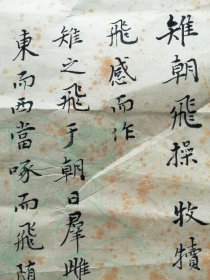 雉朝飛操 牧犢
飛感而作
雉之飛于朝日羣雌
東而西當啄而飛随